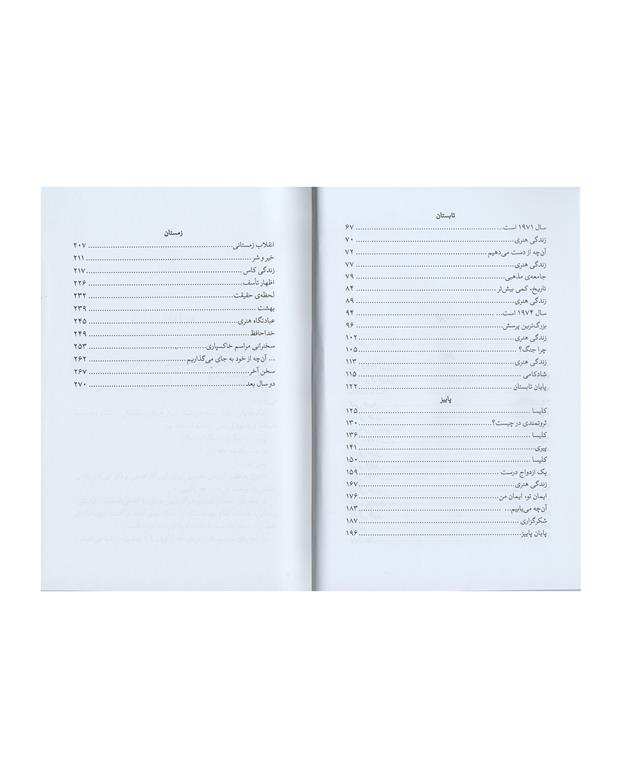 تابستان
سال ۱۹۷۱ است ۶۷
زندگی هنری ۷۰
آن‌چه از دست می‌دهیم ۷۲
زندگی هنری ۷۷
جامعه‌ی مذهبی ۷۹
تاریخ، کمی بیش‌تر ۸۴
زندگی هنری ۸۹
سال ۱۹۷۴ است ۹۴
بزرگ‌ترین پرسش ۹۶
زندگی هنری ۱۰۲
چرا جنگ؟ ۱۰۵
زندگی هنری ۱۱۳
شادکامی ۱۱۵
پایان تابستان ۱۲۲
پاییز
کلیسا ۱۲۵
ثروتمندی در چیست؟ ۱۳۰
کلیسا ۱۳۶
پیری ۱۴۱
کلیسا ۱۵۰
یک ازدواج درست ۱۵۹
زندگی هنری ۱۶۷
ایمان تو، ایمان من ۱۷۶
آن‌چه می‌یابیم... ۱۸۳
شکرگزاری ۱۸۷
پایان پاییز ۱۹۶
زمستان
انقلاب زمستانی ۲۰۷
خیر و شر ۲۱۱
زندگی کاس ۲۱۷
اظهار تأسف ۲۲۶
لحظه‌ی حقیقت ۲۳۲
بهشت ۲۳۹
عبادتگاه هنری ۲۴۵
خداحافظ ۲۴۹
سخنرانی مراسم خاکسپاری ۲۵۳
... آن‌چه از خود به جای می‌گذاریم ۲۶۲
سخن آخر ۲۶۷
دو سال بعد ۲۷۰